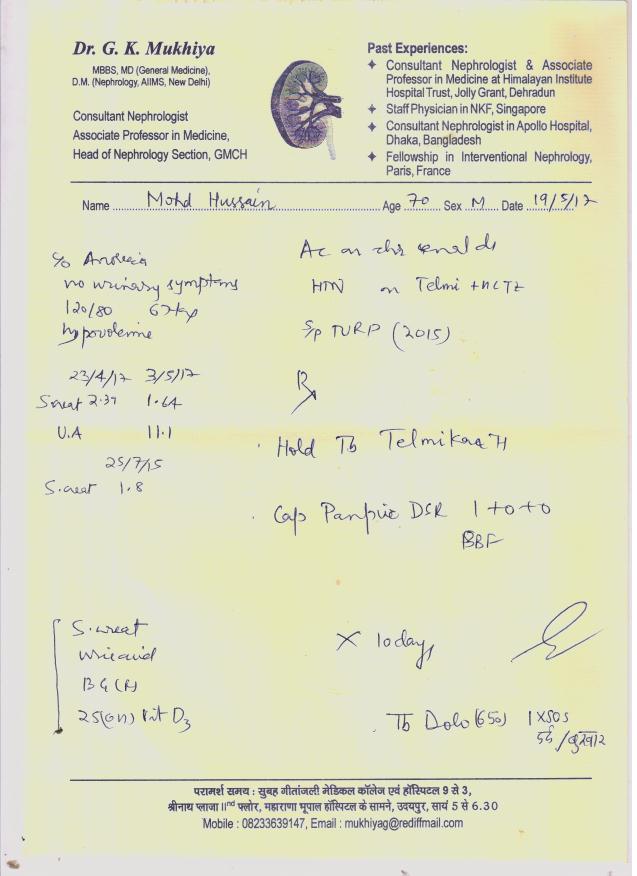 Dr. G. K. Mukhiya
MBBS, MD (General Medicine),
D.M. (Nephrology, AIIMS, New Delhi)
Consultant Nephrologist
Associate Professor in Medicine,
Head of Nephrology Section, GMCH
Past Experiences:
Consultant Nephrologist & Associate
Professor in Medicine at Himalayan Institute
Hospital Trust, Jolly Grant, Dehradun
Staff Physician in NKF, Singapore
Consultant Nephrologist in Apollo Hospital,
Dhaka, Bangladesh
Fellowship in Interventional Nephrology,
Paris, France
Name Mohd Hussain Age 70 Sex M Date 19/5/17
c/o Anorexia
no urinary symptoms
120/80 67kg
hypovolemic
23/4/17 3/5/17
S.creat 2.39 1.64
U.A 11.1
25/7/15
S.creat 1.8
Ac on chr renal ds
HTN on Telmi + HCTZ
S/p TURP (2015)
Rx
Hold Tb Telmikaa H
Cap DSR 1+0+0
BBF
S.creat
uric acid
BG (R)
25(OH) Vit D3
X 10 days
Tb Dolo (650) 1 X SOS
दर्द / बुखार
परामर्श समय : सुबह गीतांजली मेडिकल कॉलेज एवं हॉस्पिटल 9 से 3,
श्रीनाथ प्लाजा IInd फ्लोर, महाराणा भूपाल हॉस्पिटल के सामने, उदयपुर, सायं 5 से 6.30
Mobile : 08233639147, Email : mukhiyag@rediffmail.com